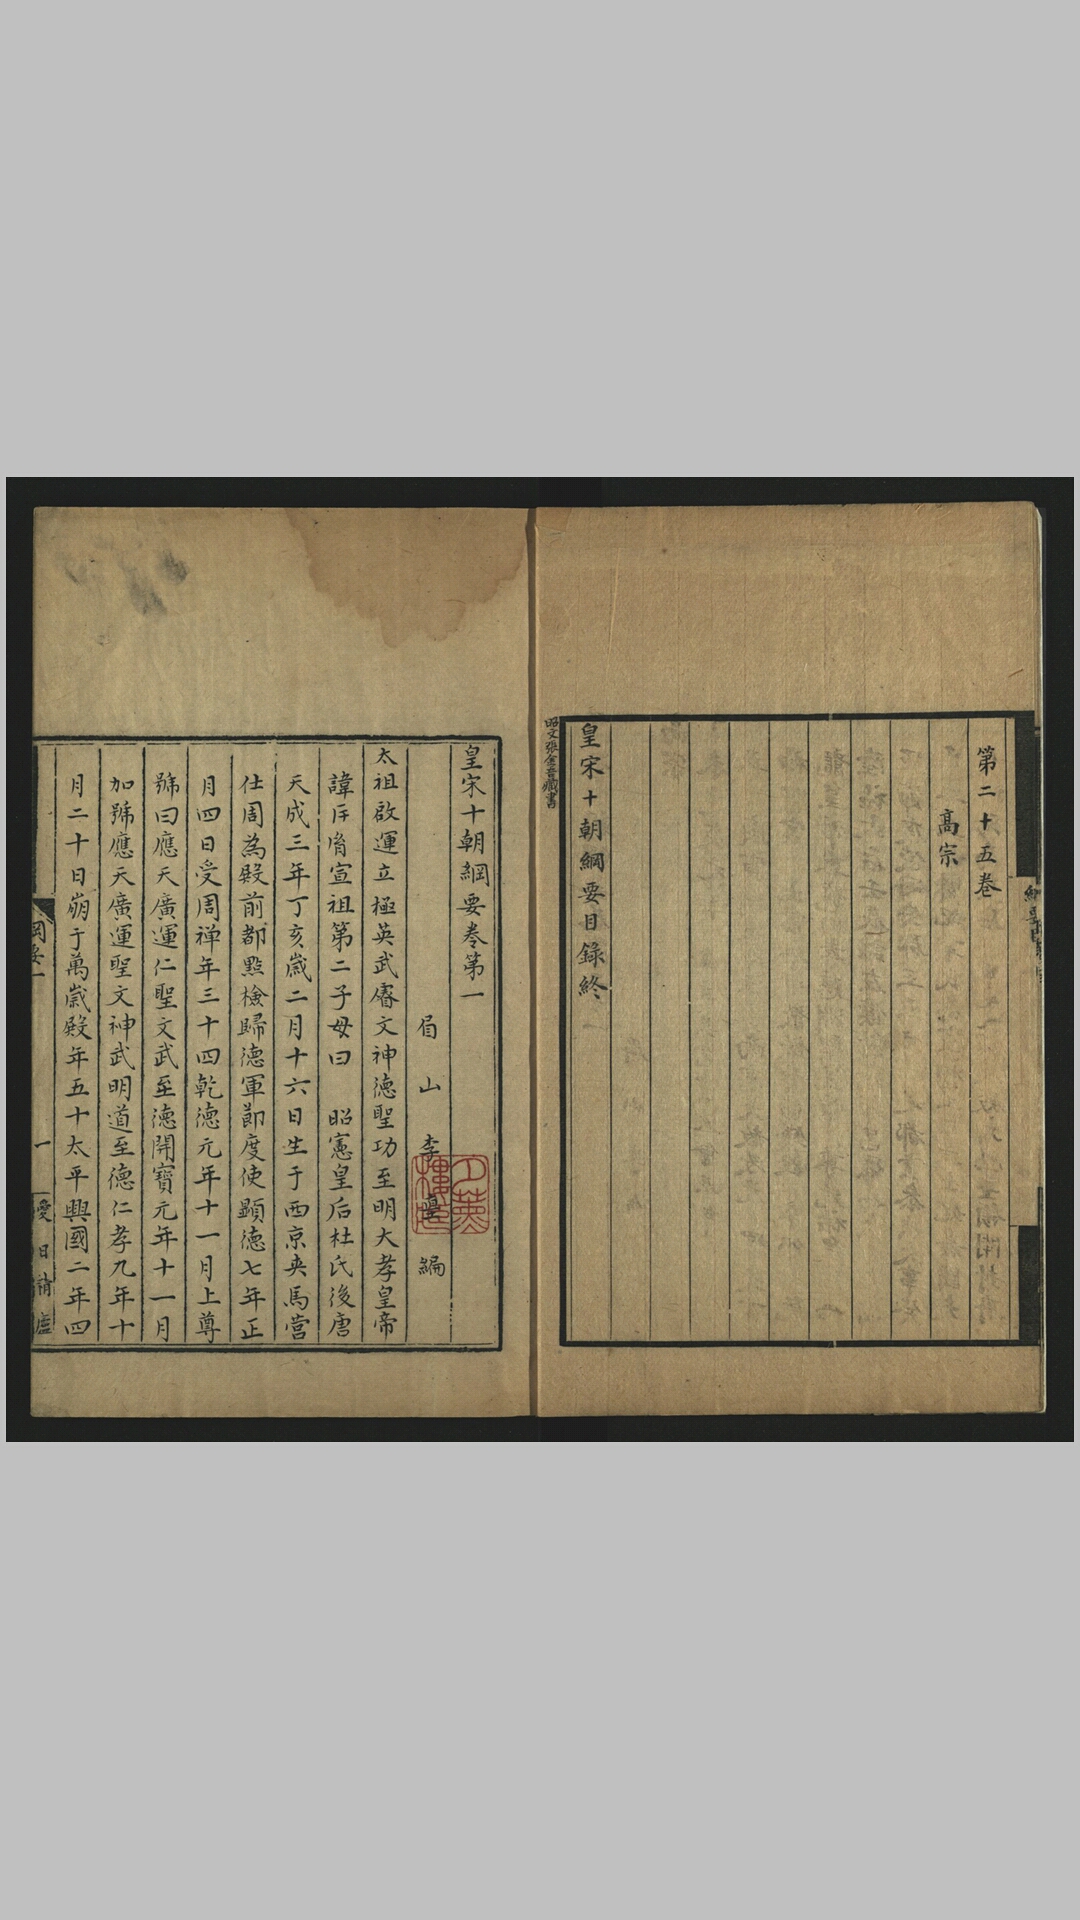 第二十五卷
高宗
皇宋十朝綱要目錄終
昭文張金吾藏書
皇宋十朝綱要卷第一
眉山李𡌴編
太祖啟運立極英武睿文神德聖功至明大孝皇帝
諱匡胤宣祖第二子母曰 昭憲皇后杜氏後唐
天成三年丁亥歲二月十六日生于西京夹馬營
仕周為殿前都點檢歸德軍節度使顯德七年正
月四日受周禅年三十四乾德元年十一月上尊
號曰應天廣運仁聖文武至德開寶元年十一月
加號應天廣運聖文神武明道至德仁孝九年十
月二十日崩于萬歲殿年五十太平興國二年四
綱要一
一
愛日精廬